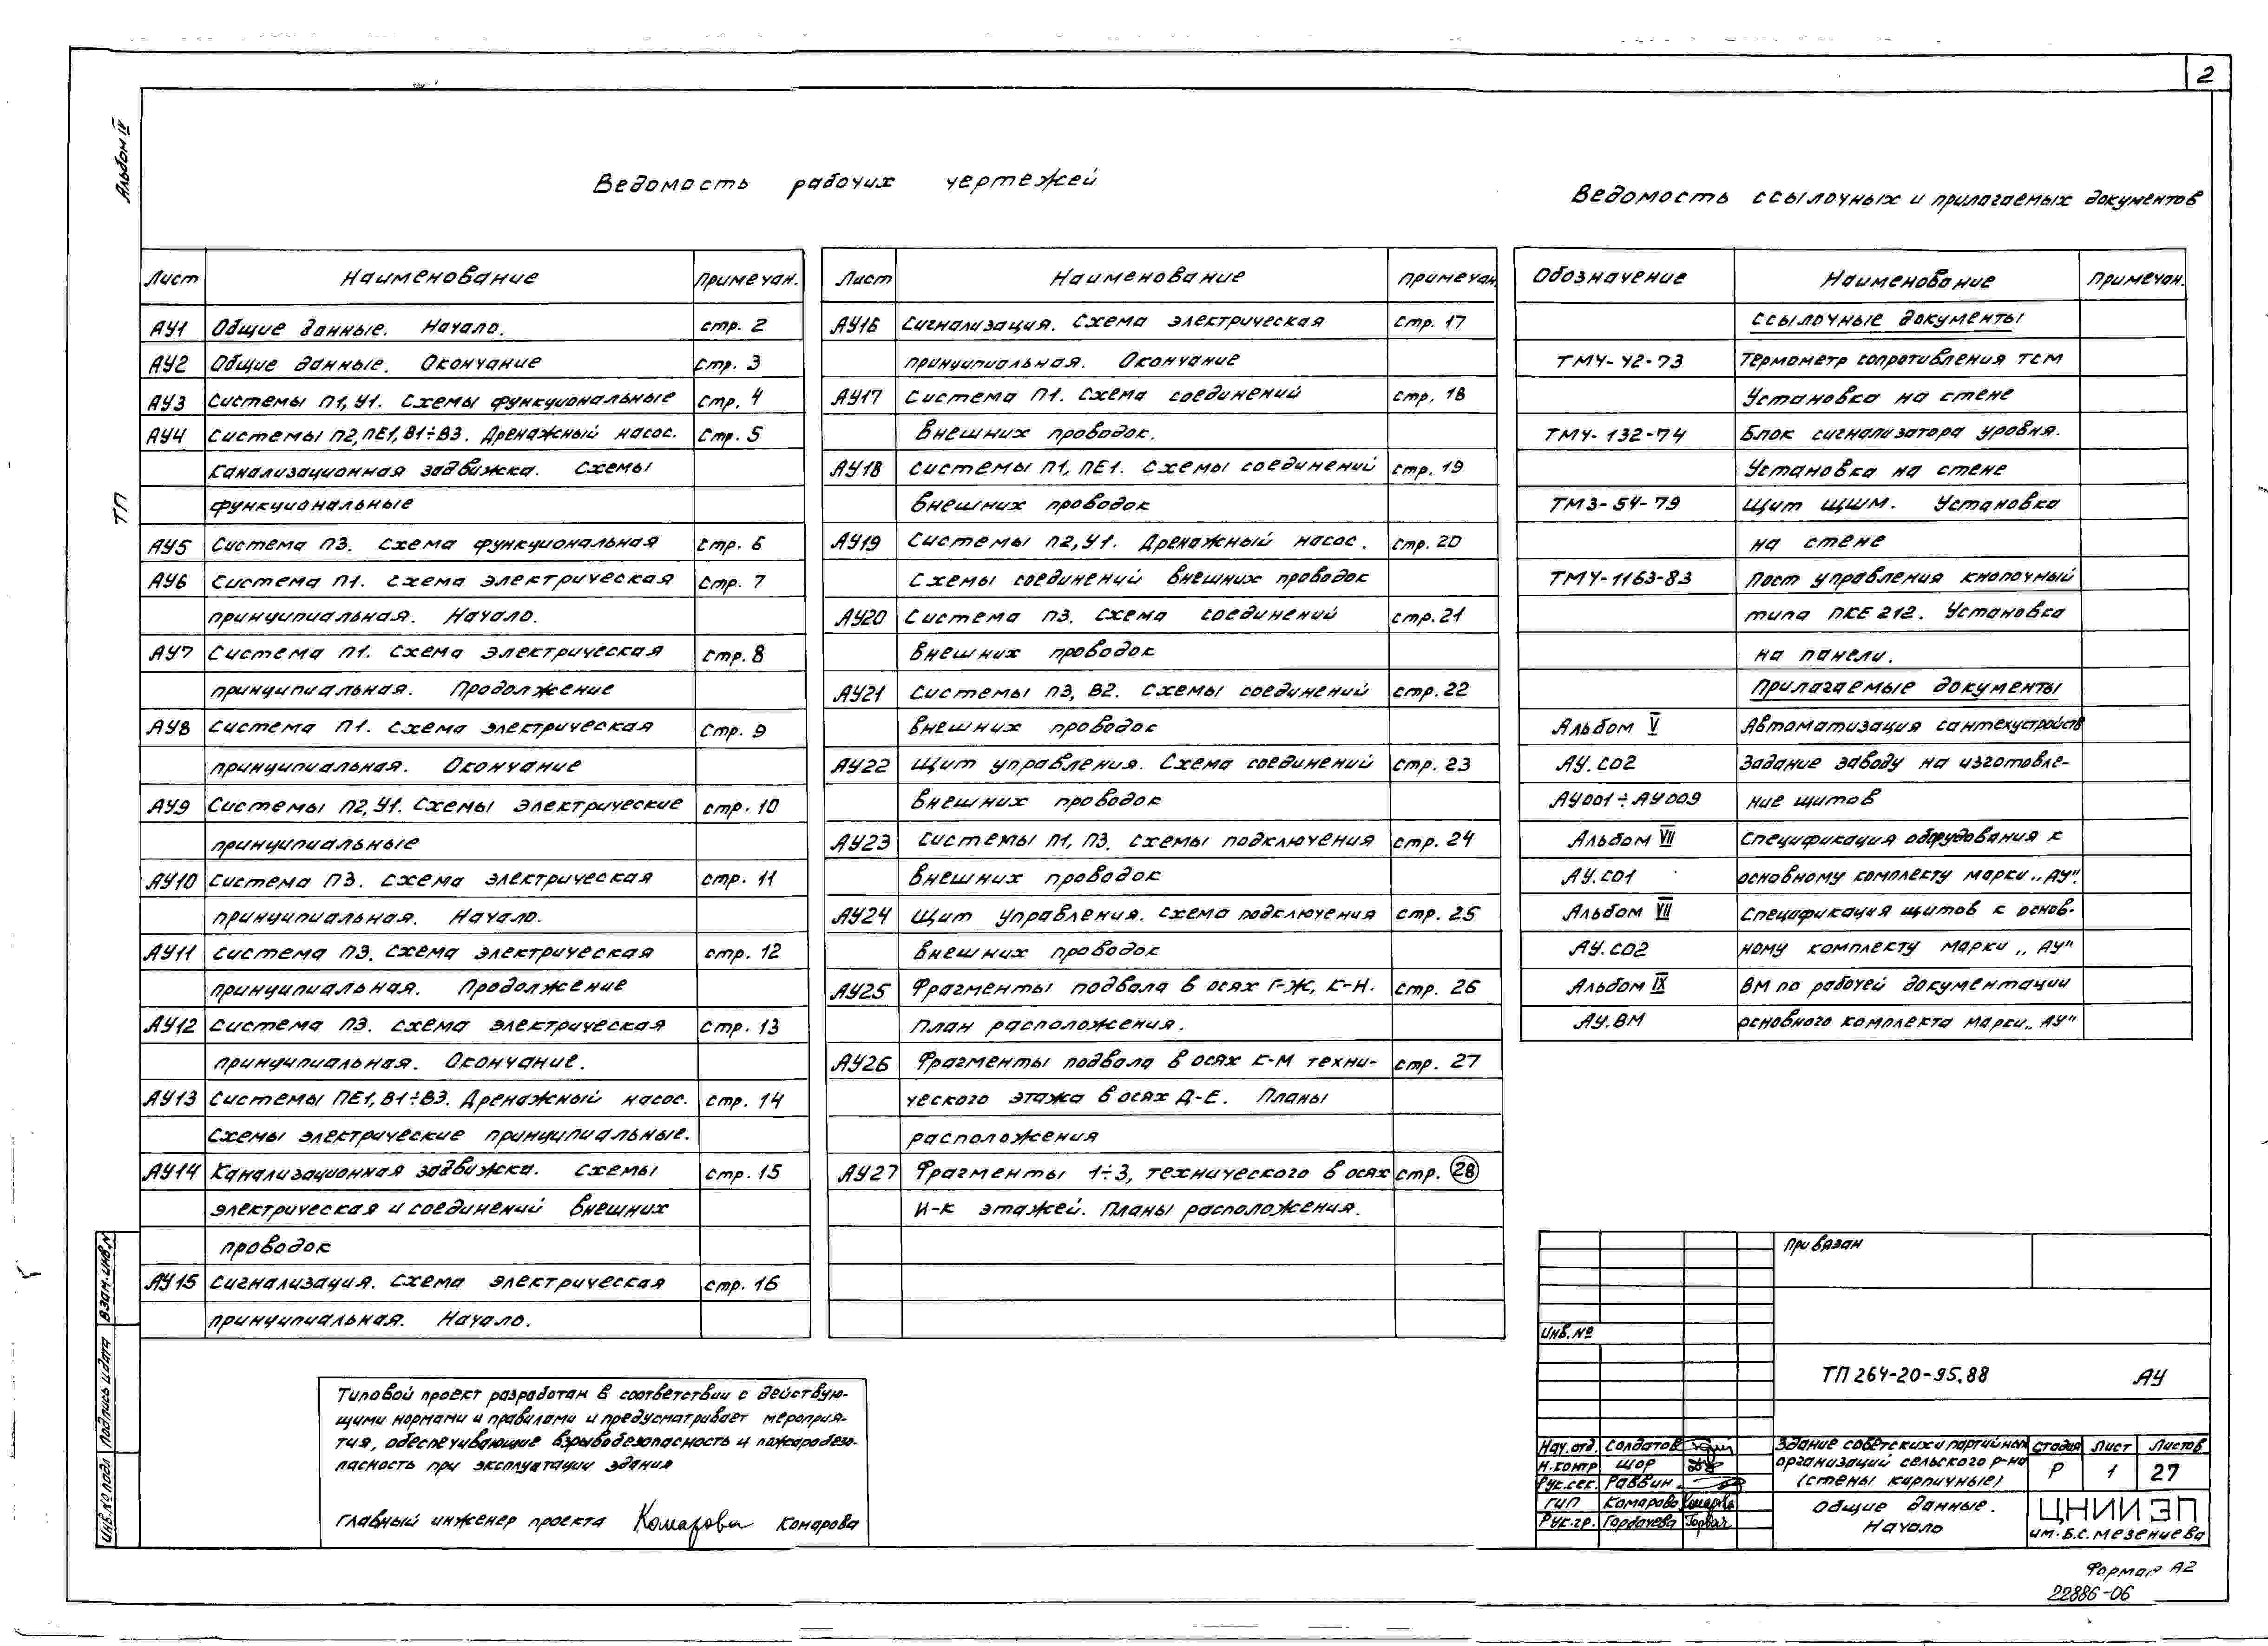 2
Альбом IV
ТП
Ведомость рабочих чертежей
Лист Наименование Примечан.
АУ1 Общие данные. Начало. стр. 2
АУ2 Общие данные. Окончание стр. 3
АУ3 Системы П1, У1. Схемы функциональные стр. 4
АУ4 Системы П2, ПЕ1, В1÷В3. Дренажный насос. стр. 5
Канализационная задвижка. Схемы
функциональные
АУ5 Система П3. Схема функциональная стр. 6
АУ6 Система П1. Схема электрическая стр. 7
принципиальная. Начало.
АУ7 Система П1. Схема электрическая стр. 8
принципиальная. Продолжение
АУ8 Система П1. Схема электрическая стр. 9
принципиальная. Окончание
АУ9 Системы П2, У1. Схемы электрические стр. 10
принципиальные
АУ10 Система П3. Схема электрическая стр. 11
принципиальная. Начало.
АУ11 Система П3. Схема электрическая стр. 12
принципиальная. Продолжение
АУ12 Система П3. Схема электрическая стр. 13
принципиальная. Окончание.
АУ13 Системы ПЕ1, В1÷В3. Дренажный насос. стр. 14
Схемы электрические принципиальные.
АУ14 Канализационная задвижка. Схемы стр. 15
электрическая и соединений внешних
проводок
АУ15 Сигнализация. Схема электрическая стр. 16
принципиальная. Начало.
Лист Наименование Примечан.
АУ16 Сигнализация. Схема электрическая стр. 17
принципиальная. Окончание
АУ17 Система П1. Схема соединений стр. 18
внешних проводок.
АУ18 Системы П1, ПЕ1. Схемы соединений стр. 19
внешних проводок
АУ19 Системы П2, У1. Дренажный насос. стр. 20
Схемы соединений внешних проводок
АУ20 Система П3. Схема соединений стр. 21
внешних проводок
АУ21 Системы П3, В2. Схемы соединений стр. 22
внешних проводок
АУ22 Щит управления. Схема соединений стр. 23
внешних проводок
АУ23 Системы П1, П3. Схемы подключения стр. 24
внешних проводок
АУ24 Щит управления. Схема подключения стр. 25
внешних проводок
АУ25 Фрагменты подвала в осях Г-Ж, К-Н. стр. 26
План расположения.
АУ26 Фрагменты подвала в осях К-М техни- стр. 27
ческого этажа в осях Д-Е. Планы
расположения
АУ27 Фрагменты 1÷3, технического в осях стр. 28
И-К этажей. Планы расположения.
Ведомость ссылочных и прилагаемых документов
Обозначение Наименование Примечан.
Ссылочные документы
ТМ4-42-73 Термометр сопротивления ТСМ
Установка на стене
ТМ4-132-74 Блок сигнализатора уровня.
Установка на стене
ТМ3-54-79 Щит ЩШМ. Установка
на стене
ТМ4-1163-83 Пост управления кнопочный
типа ПКЕ 212. Установка
на панели.
Прилагаемые документы
Альбом V Автоматизация сантехустройств
АУ.СО2 Задание заводу на изготовле-
АУ001÷АУ009 ние щитов
Альбом VII Спецификация оборудования к
АУ.СО1 основному комплекту марки „АУ".
Альбом VII Спецификация щитов к основ-
АУ.СО2 ному комплекту марки „АУ"
Альбом IX ВМ по рабочей документации
АУ.ВМ основного комплекта марки „АУ"
Типовой проект разработан в соответствии с действую-
щими нормами и правилами и предусматривает мероприя-
тия, обеспечивающие взрывобезопасность и пожаробезо-
пасность при эксплуатации здания
Главный инженер проекта Комарова Комарова
Взам.инв.N
Подпись и дата
Инв.No подл
Привязан
Инв. No
ТП 264-20-95.88 АУ
Нач.отд. Солдатов
Н.контр Шор
Рук.сек. Раввин
ГИП Комарова Комарова
Рук.гр. Горбачева Горбач
Здание советских и партийных
организаций сельского р-на
(стены кирпичные)
Стадия Лист Листов
Р 1 27
Общие данные.
Начало
ЦНИИЭП
им. Б.С. Мезенцева
Формат А2
22886-06